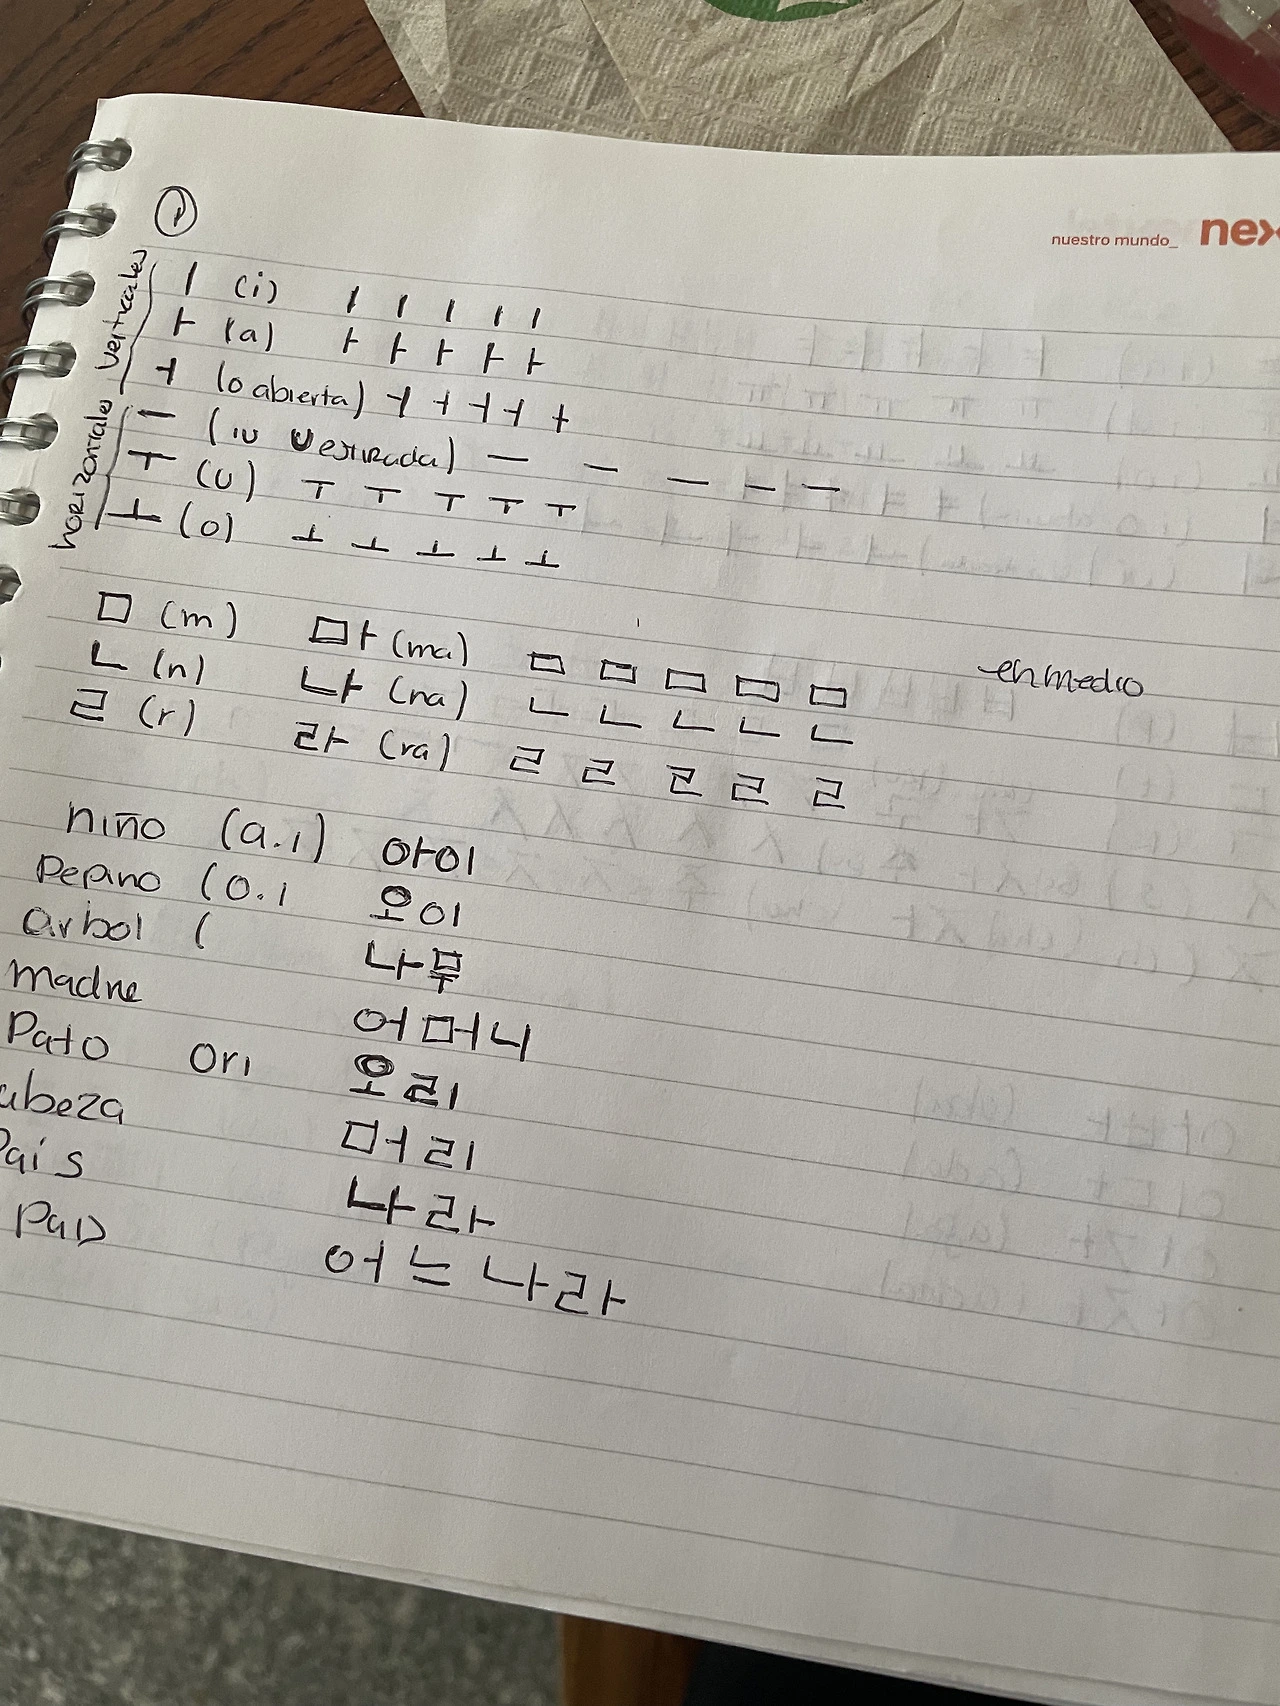 nuestro mundo_ nex
1
verticales
ㅣ (i) ㅣ ㅣ ㅣ ㅣ ㅣ
ㅏ (a) ㅏ ㅏ ㅏ ㅏ ㅏ
ㅓ (o abierta) ㅓ ㅓ ㅓ ㅓ ㅓ
horizontales
ㅡ (iu u estirada) ㅡ ㅡ ㅡ ㅡ ㅡ
ㅜ (u) ㅜ ㅜ ㅜ ㅜ ㅜ
ㅗ (o) ㅗ ㅗ ㅗ ㅗ ㅗ
ㅁ (m) 마 (ma) ㅁ ㅁ ㅁ ㅁ ㅁ -en medio
ㄴ (n) 나 (na) ㄴ ㄴ ㄴ ㄴ ㄴ
ㄹ (r) 라 (ra) ㄹ ㄹ ㄹ ㄹ ㄹ
niño (a.i) 아이
pepino (o.i 오이
arbol ( 나무
madre 어머니
Pato ori 오리
abeza 머리
País 나라
país 어느 나라